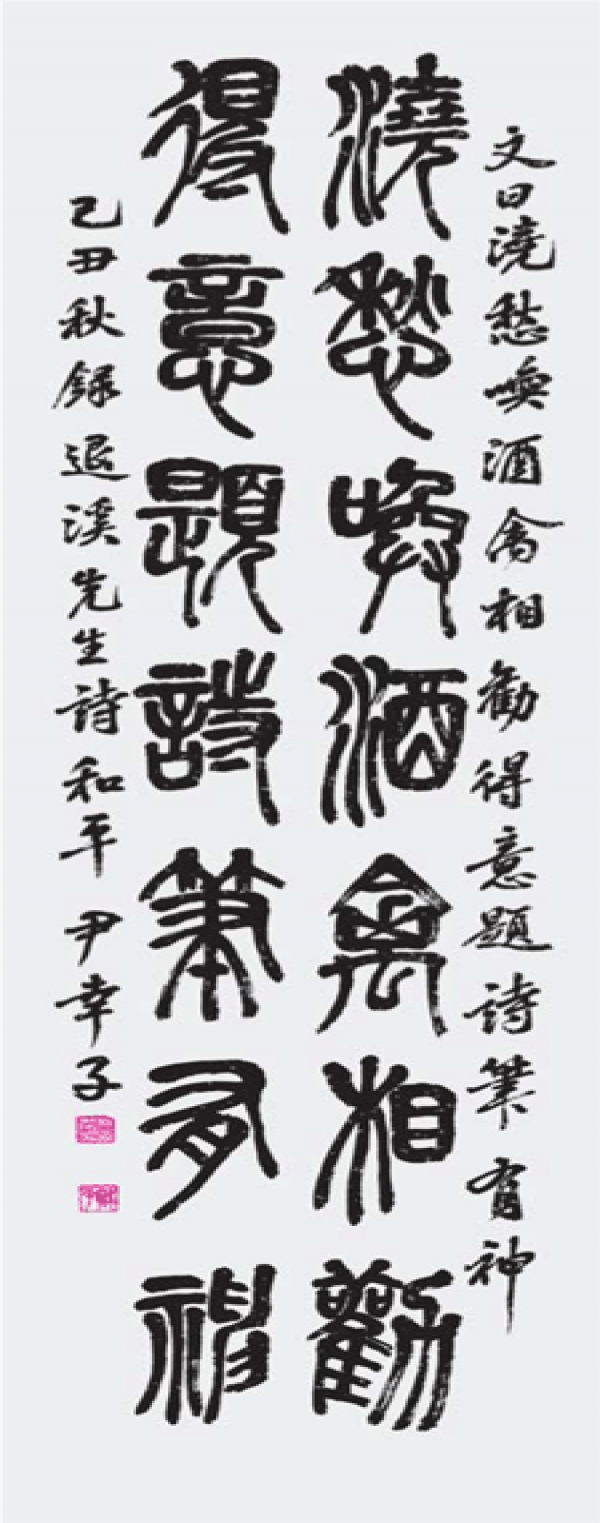 文曰澆愁喚酒禽相勸得意題詩筆有神
澆愁喚酒禽相勸
得意題詩筆有神
己丑秋錄退溪先生詩和平 尹幸子